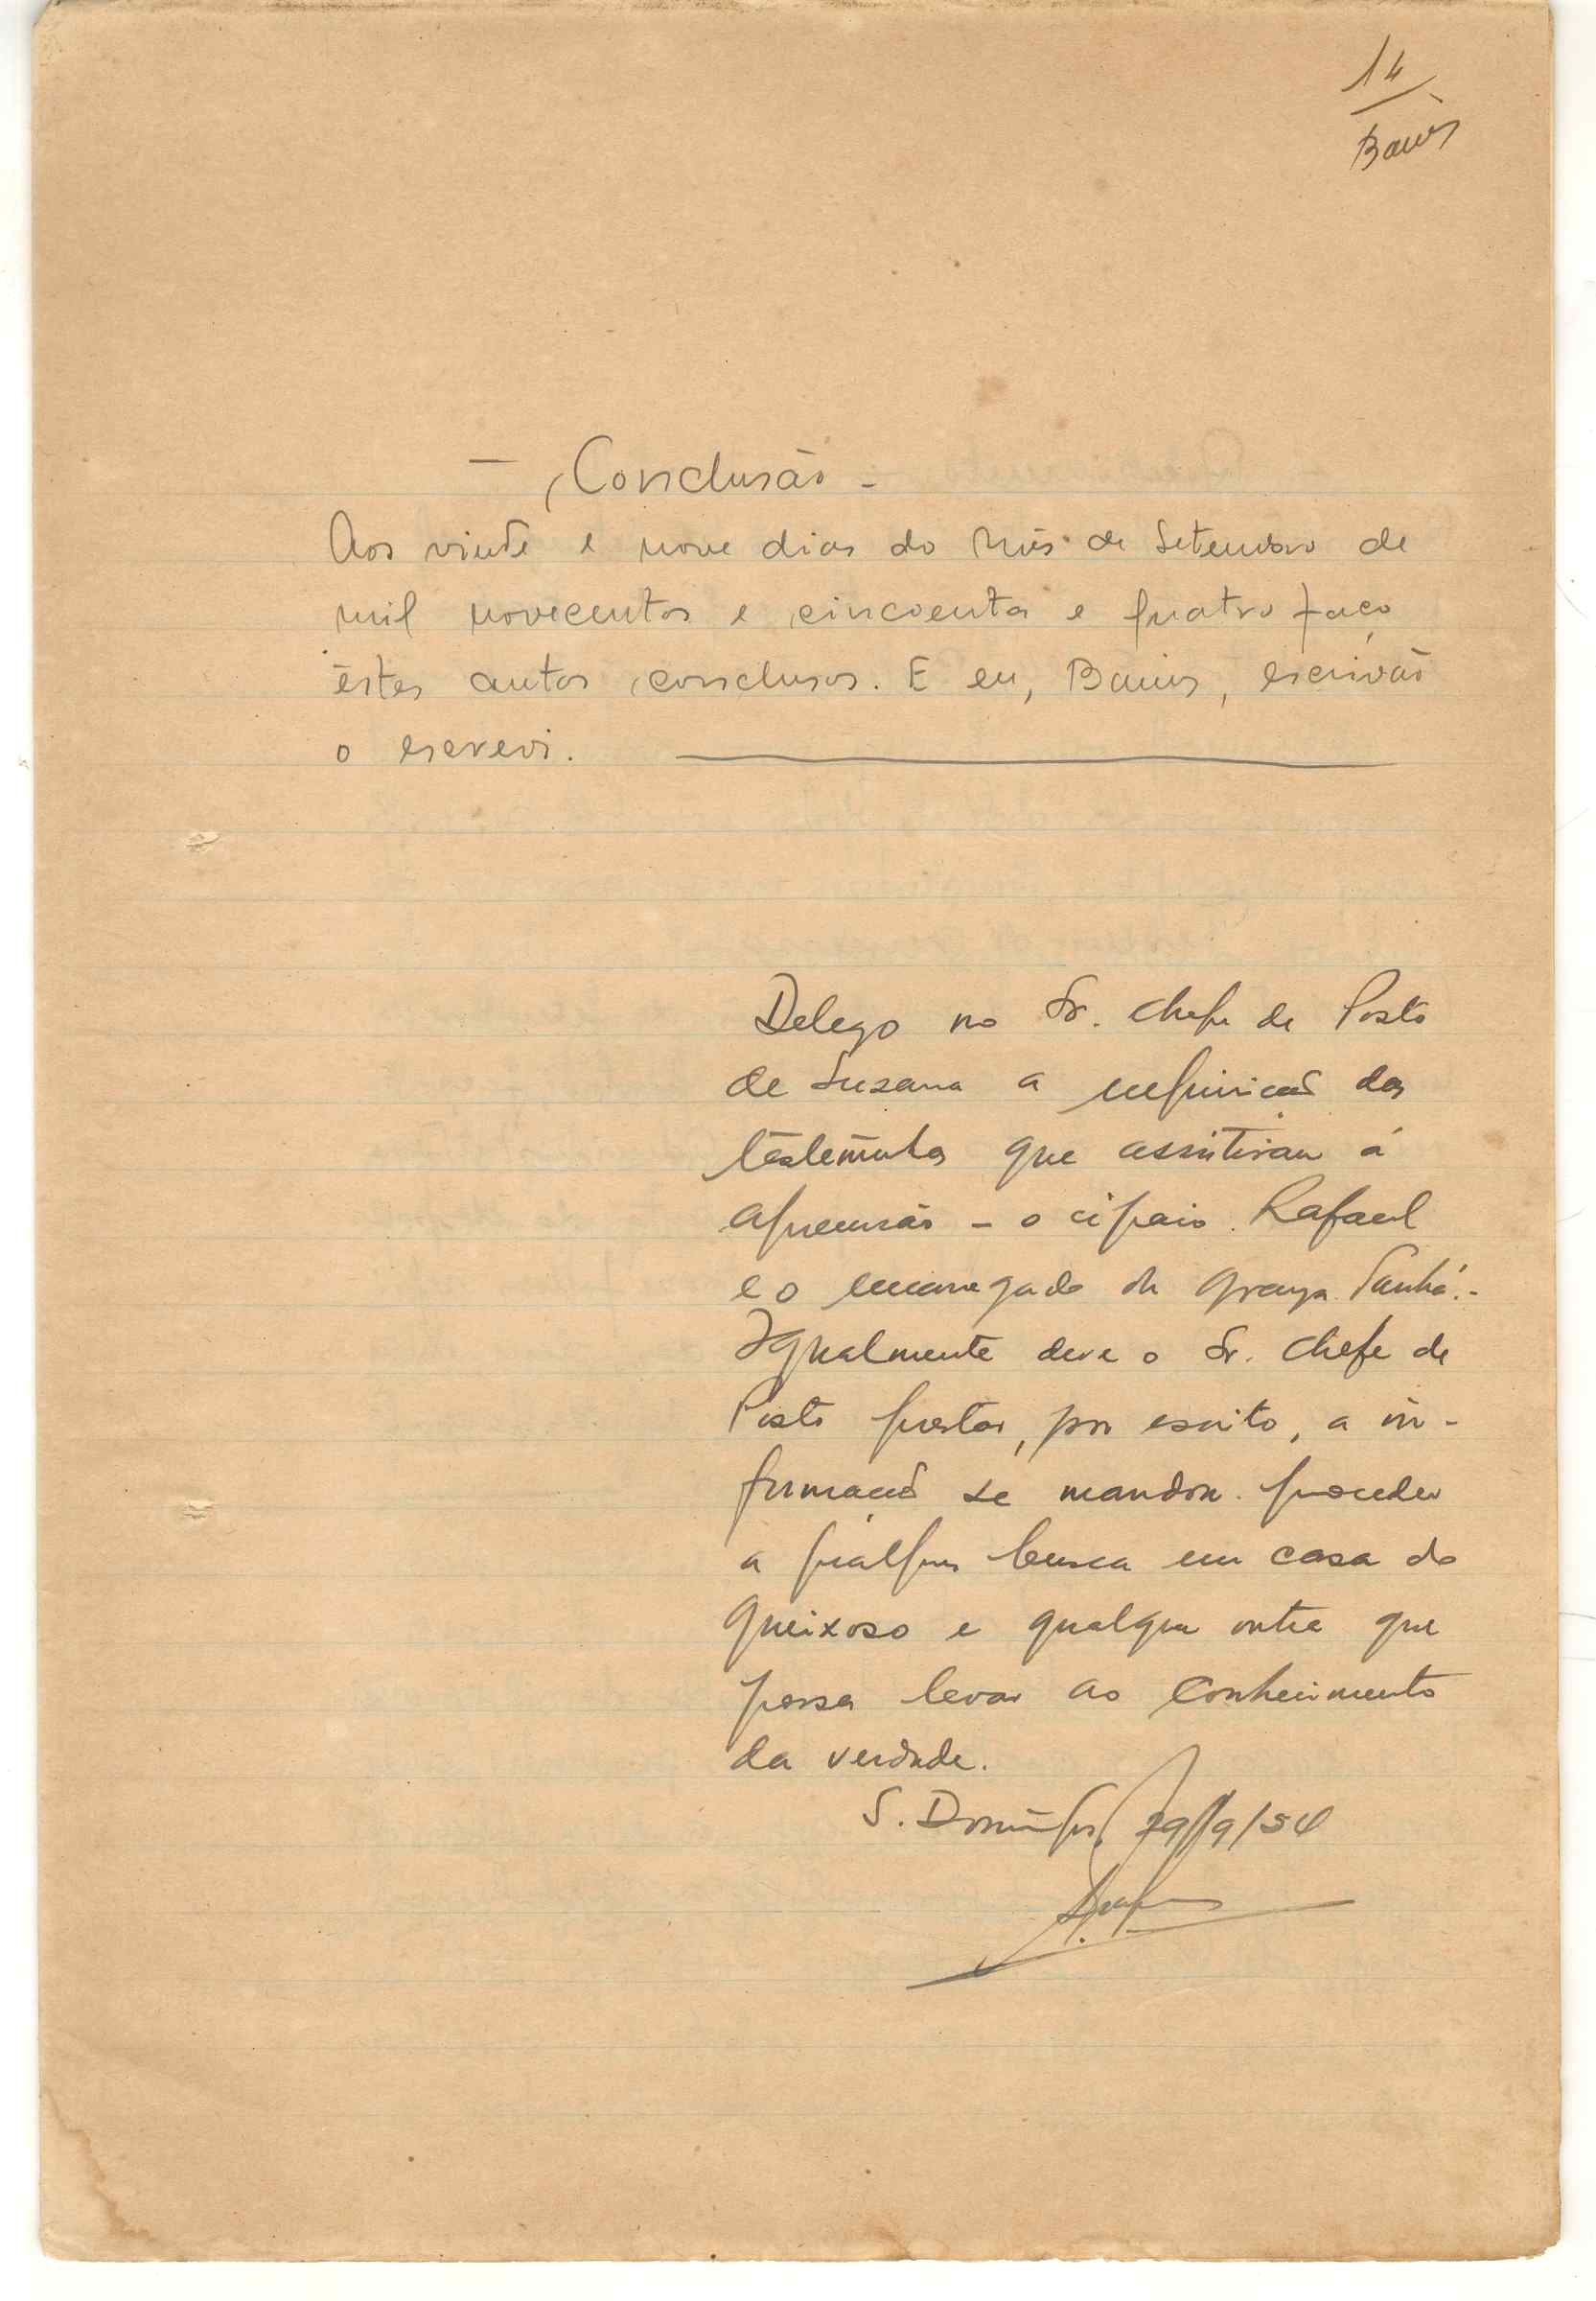 14
— Conclusão —
Aos vinte e nove dias do mês de Setembro de
mil novecentos e cincoenta e quatro faço
êstes autos conclusos. E eu, escrivão
o escrevi.
Delego no Sr. Chefe de Posto
de Susana a inquirição das
testemunhas que assistiram á
apreensão - o cipaio Rafael
e o encarregado da granja Sanhá.-
Igualmente deve o Sr. Chefe de
Posto prestar, por escrito, a in-
formação se mandou proceder
a qualquer busca em casa do
queixoso e qualquer outra que
possa levar ao conhecimento
da verdade.
S. Domingos, 29/9/54